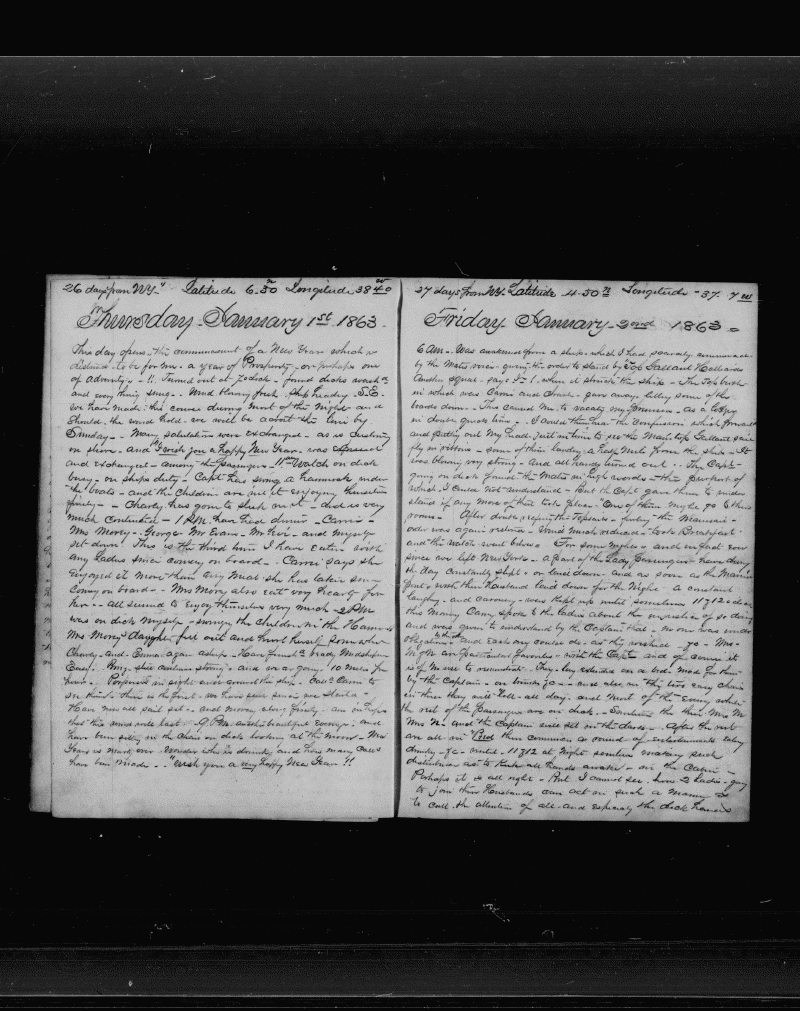 26 days from NY. Latitude 6.30 n Longitude 38 40 w
Thursday January 1st 1863.
This day opens the commencement of a New Year which is
destined to be for me a year of Prosperity or perhaps one
of adversity. Turned out at 7 o'clock found decks
and every thing snug. Wind fresh Ship heading S.E.
We have made this course during most of the night and
should the wind hold we will be about the by
Sunday. Many salutations were exchanged as is
on shore and "I wish you a happy New Year" was expressed
and exchanged among the Passengers. Watch on deck
busy on ships duty. Capt has swung a Hammock under
the boats and the Children are in it enjoying themselves
finely. Charley has gone to in it and is very
much contented. 1 P.M. have had dinner Carrie
Mrs Morey George Mr Evans Mr and myself
set down. This is the third time I have eaten with
any Ladies since coming on board. Carrie says she
enjoyed it more than any meal she has taken since
coming on board. Mrs Morey also eat very hearty for
her. all seemed to enjoy themselves very much. 2 P.M.
was on deck myself swung the Children in the Hammock
Mrs Moreys daughter fell out and hurt herself somewhat
Charley and Emma again asleep.
Easy. strong and we are going 10 miles per
hour. Porpoises in sight over around the ship. Call Carrie to
see them this is the first we have seen since we started.
Have now all sail set and moving along finely are in hopes
that this wind will last. 9 P.M. another beautiful evening and
have been sitting in the chair on deck looking at the moon. New
Years is nearly over. Wonder who is drunk and how many calls
have been made. "Wish you a very happy New Year"!!
27 days from NY. Latitude 4.50 n Longitude 37. 7 w
Friday January 2nd 1863
6 AM. Was awakened from a sleep which I had scarcely commenced
by the Mate's voice giving the order to stand by Top Gallant Halliards
Another squall says I when it struck the ship. The
in which was Carrie and gave away letting some of the
boards down. This caused me to vacate my as a
in double quick time. I could then hear the confusion which prevailed
and putting out my head just in time to see the Main Top Gallant sail
fly in ribbons some of them landing a half mile from the ship. It
was blowing very strong and all hands turned out. The Capt
going on deck found the Mates in high words the purport of
which I could not understand. But the Capt gave them to under
stand if any more of that took place. One of them might go to their
rooms. After double reefing the Topsails furling the Mainsail
order was again restored. Wind much reduced took Breakfast
and the watch went below. For some nights and in fact ever
since we left New York a part of the Lady Passengers have during
the day constantly slept or laid down and as soon as the Mains
and their Husbands laid down for the Night a constant
laughing and was kept up until sometimes 11 & 12 o'clock
this morning Carrie spoke to the Ladies about the of so doing
and was given to understand by the Captain that no one was under
obligations to them and each one could do as they wished &c. Mrs
M & N are particular favorites with the Capt and of course it
is of no use to remonstrate. They lay extended on a bed made for them
by the Captain on &c and also in the two easy chairs
in these they will loll all day and most of the Evening while
the rest of the Passengers are on deck. Sometimes the Mrs M
Mrs N. and the Captain will sit in the dark. After the rest
are all in Bed then commences a round of entertainments eating
drinking &c until 11 & 12 at Night sometimes making such
disturbance as to keep all hands awake in the Cabin.
Perhaps it is all right. But I cannot see how 2 Ladies going
to join their Husbands can act in such a manner as
to call the attention of all and especially the deck hands